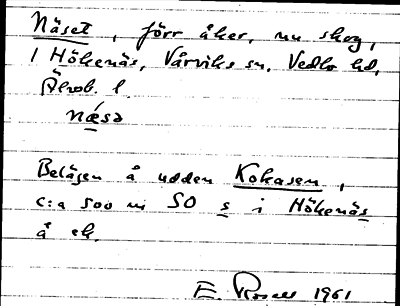 Näset, förr åker, nu skog,
1 Hökenäs, Vårviks sn, Vedbo hd,
Älvsb. l.
næ̀sə
Belägen å udden Kokasen,
c:a 500 m SO s i Hökenäs
å ek.
E. 1961